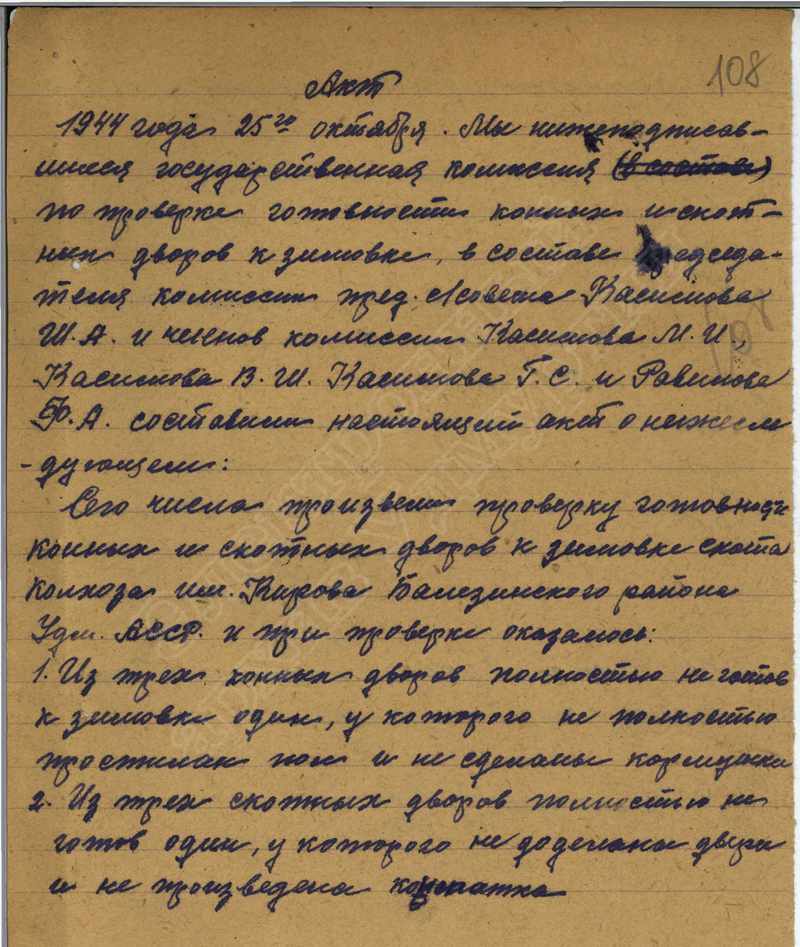 108
Акт
1944 года 25го октября. Мы нижеподписав-
шиеся государственная комиссия (в составе)
по проверке готовности конных и скот-
ных дворов к зимовке, в составе председа-
теля комиссии пред. с/совета Касимова
Ш.А. и членов комиссии Касимова М.И.,
Касимова В.Ш. Касимова Г.С. и
Ф.А. составили настоящий акт о нижесле
-дующем:
Сего числа произвели проверку готовности
конных и скотных дворов к зимовке скота
Колхоза им. Кирова Балезинского района
Удм. АССР. и при проверке оказалось:
1. Из трех конных дворов полностью не готов
к зимовке один, у которого не полностью
простилан пол и не сделаны кормушки
2. Из трех скотных дворов полностью не
готов один, у которого не доделаны двери
и не произведена